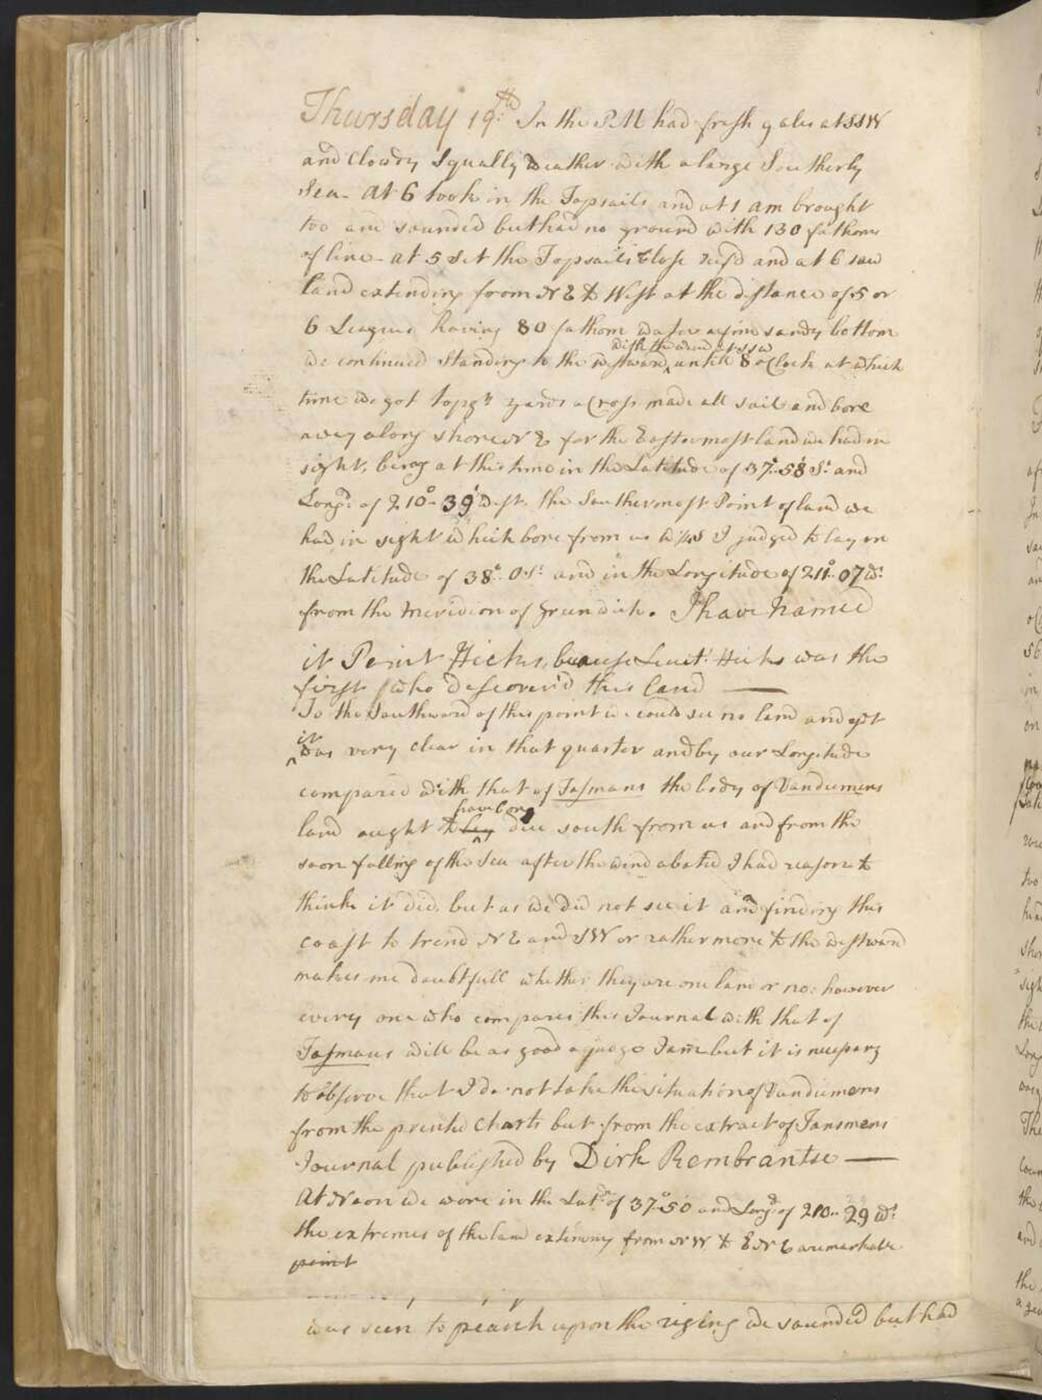 Thursday 19th. In the PM had fresh gales at SSW
and Clowdy Squally Weather with a large Southerly
Sea. At 6 took in the Topsails and at 1 am brought
too and sounded but had no ground with 130 fathoms
of line. At 5 set the Topsails Close reef'd and at 6 saw
land extending from NE to West at the distance of 5 or
6 Leagues having 80 fathom water a fine sandy bottom
with the wind at SSW
we continued Standing to the westward ‸ untill 8 oClock at which
time we got topgt yards a Cross made all sail and bore
away along shore NE for the Eastermost land we had in
sight, being at this time in the Latitude of 37°..58' S. and
Longd. of 210°..39' West. the Southermost Point of land we
had in sight which bore from us W¼S I judged to lay in
the Latitude of 38°..0 S. and in the Longitude of 211°..07' Wt.
from the Meridion of Greenwich. I have Named
it Point Hicks, because Leuit. Hicks was the
first who discover'd this land —
To the Southward of this point we could see no land and yet
it
‸ was very clear in that quarter and by our Longitude
compared with that of Tasmans the body of Vandiemens
have bore
land ought to ‸ due south from us and from the
soon falling of the Sea after the wind abated I had reason to
think it did, but as we did not see it and finding this
coast to trend NE and SW or rather more to the westward
makes me doubtfull whether they are one land or no: however
every one who compares this Journal with that of
Tasmans will be as good a judge I am but it is necessary
to observe that I do not take the situation of Vandiemens
from the printed Charts but from the extract of Tansmans
Journal published by Dirk Rembrantse —
At Noon we were in the Latd. of 37°..50' and Longd. of 210..29 Wt.
the extremes of the land extending from NW to ENE a remarkable
point
was seen to pearch upon the riging we sounded but had